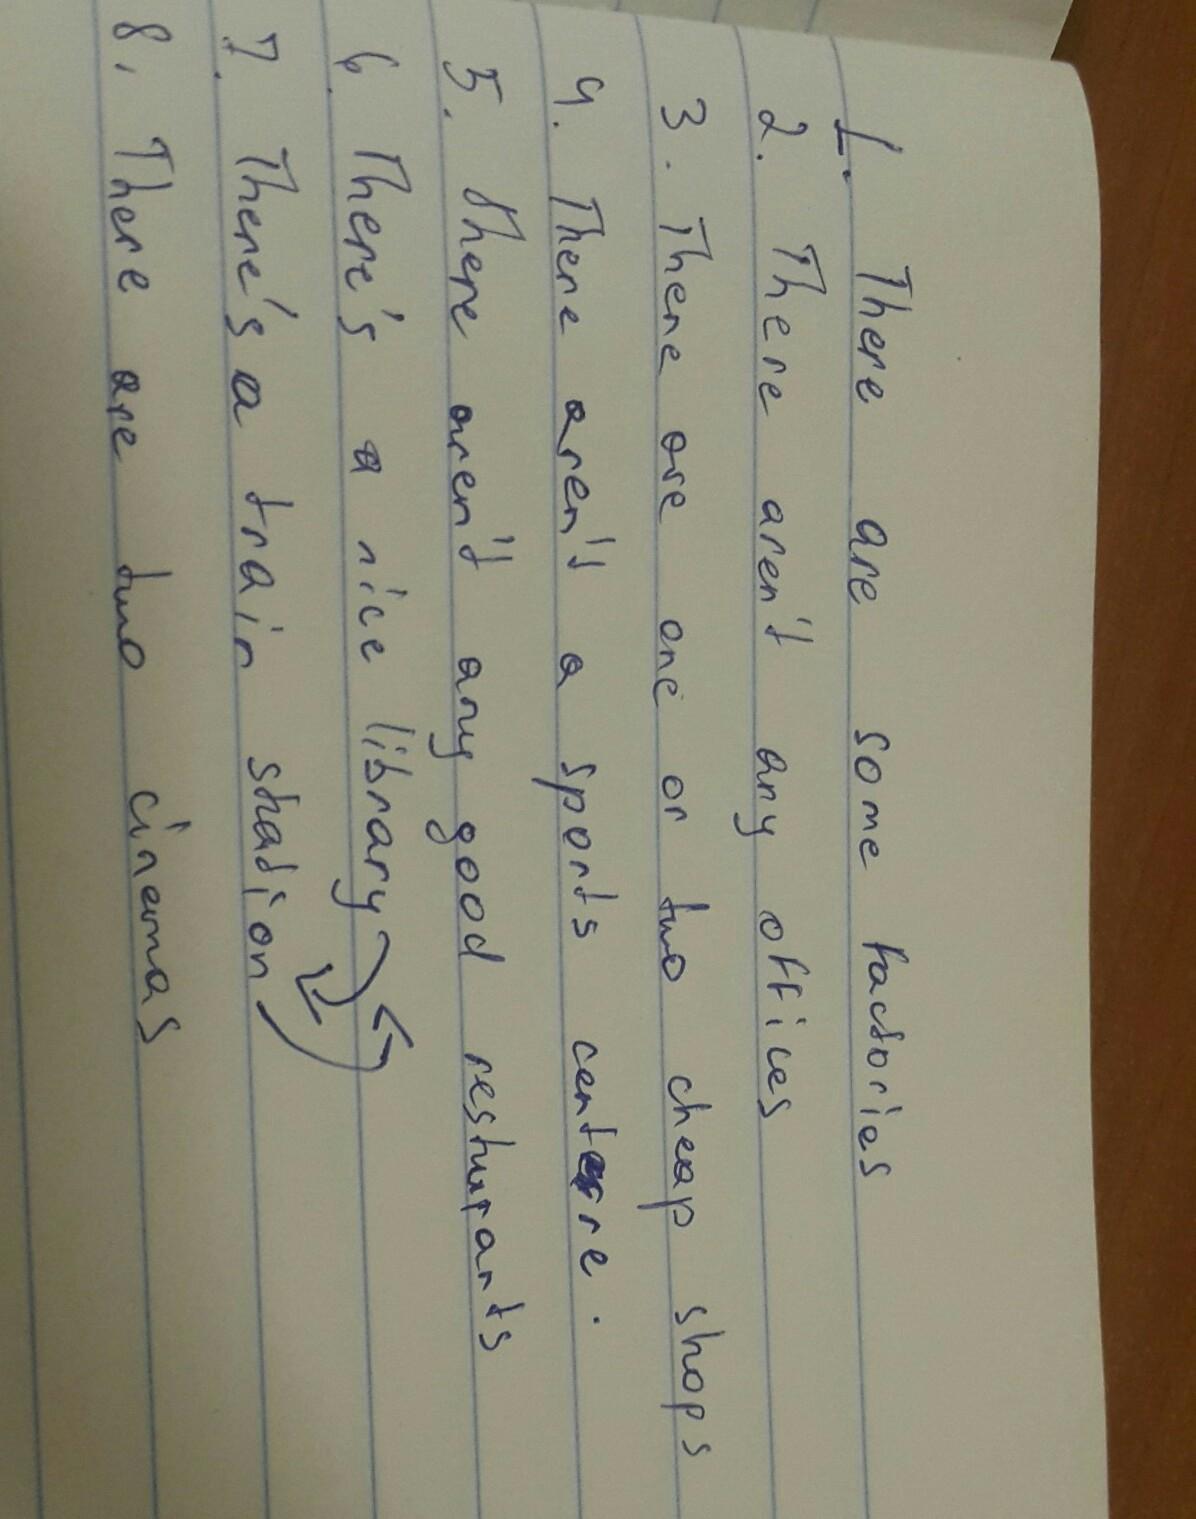 1. There are some factories
2. There aren't any offices
3. There are one or two cheap shops
4. There aren't a sports centre.
5. There aren't any good resturants
6. There's a nice library
7. There's a train station
8. There are two cinemas